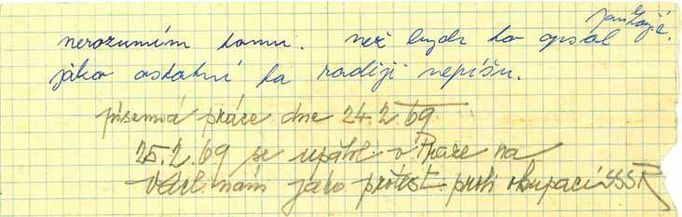 Jan Zajíc.
nerozumím tomu. než bych to opsal
jako ostatní to raději nepíšu.
písemná práce dne 24.2.69
25.2.69 se upálil v Praze na
Václ. nám jako protest proti okupaci SSSR